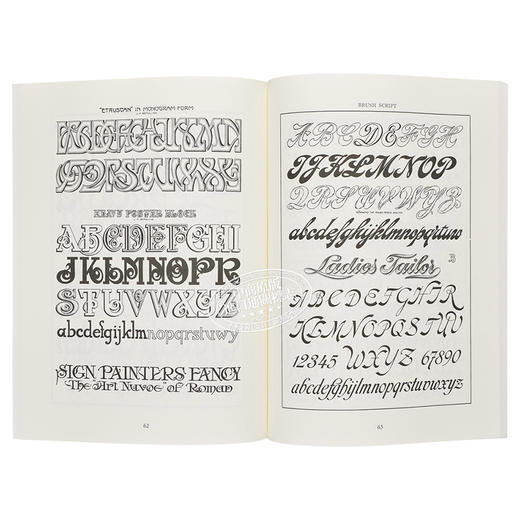 "ETRUSCAN" IN MONOGRAM FORM
HEAVY POSTER BLOCK
ABCDEFGHI
JKLMNOPR
STUVWXYZ
abcdefgijklmnopqrstuwy
SIGN PAINTERS FANCY
"The Art Nuvoe" of Roman
62
BRUSH SCRIPT
ABCDEFGH
IJKLMNOP
QRSTUVWXYZ
abcdefghijklmnopqrstuvw
Ladies Tailor
ABCDEFGHIJ
KLMNOPQRSTUV
12345 WXYZ 67890
abcdefghijklmnopqrstuvwxyz
63